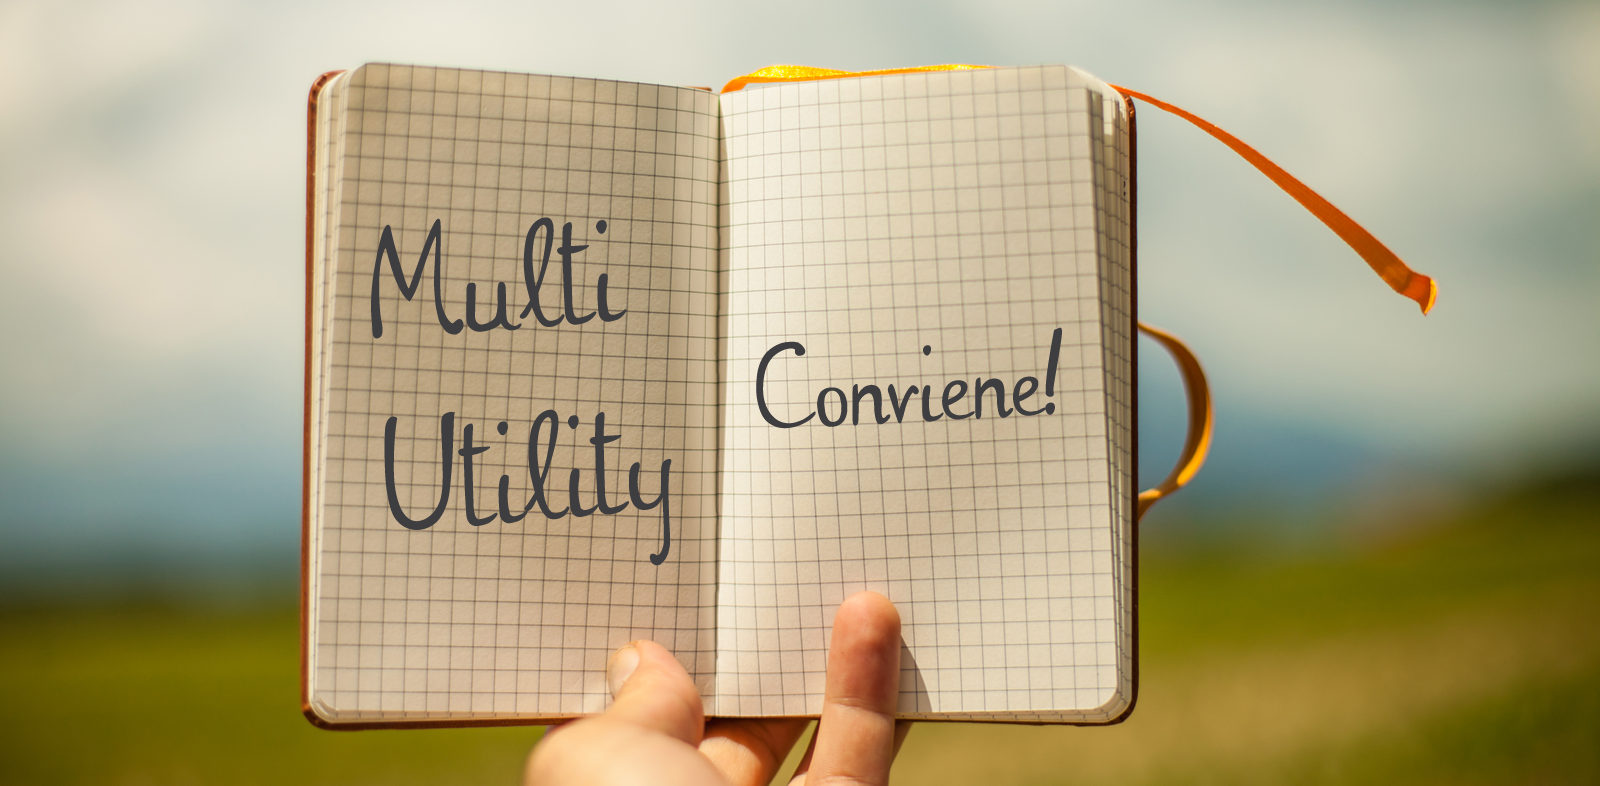 Multi
Utility
Conviene!